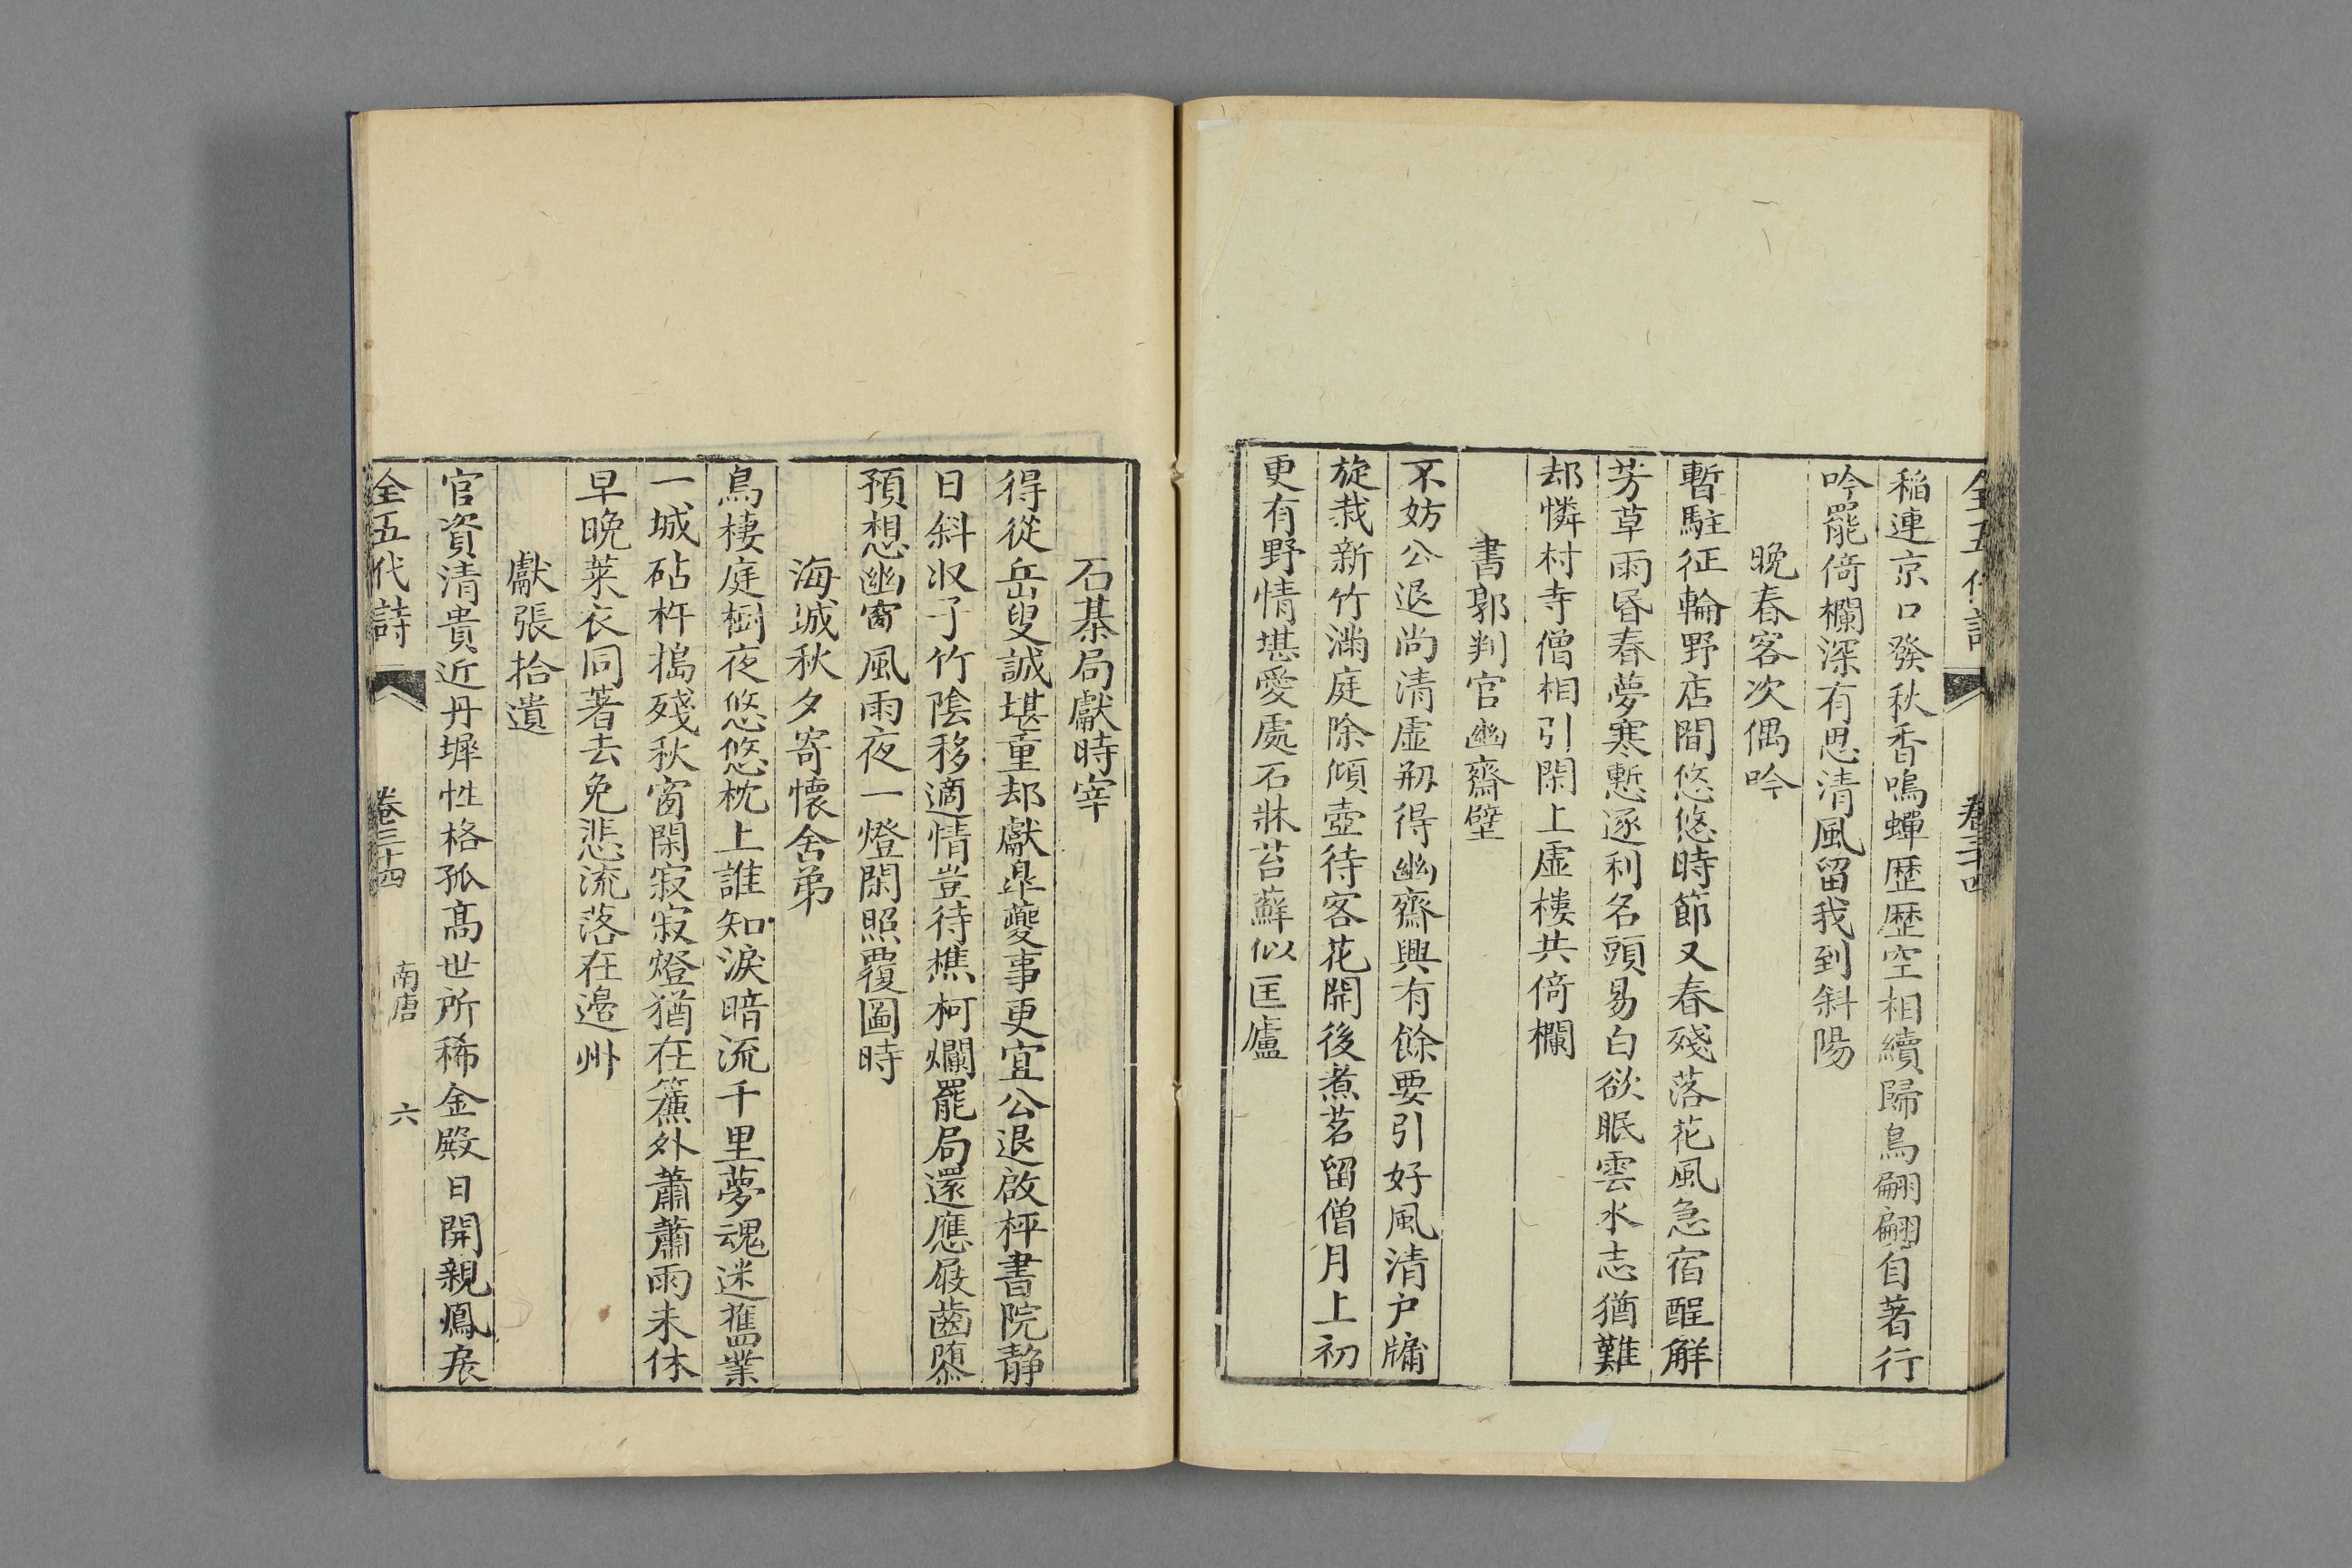 全五代詩 卷三十四
稲連京口發秋香鳴蟬歷歷空相續歸鳥翩翩自著行
吟罷倚欄深有思清風留我到斜陽
晚春客次偶吟
暫駐征輪野店間悠悠時節又春殘落花風急宿酲解
芳草雨昏春夢寒慙逐利名頭易白欲眠雲水志猶難
却憐村寺僧相引閑上虛樓共倚欄
書郭判官幽齋壁
不妨公退尚清虛剏得幽齋興有餘要引好風清户牖
旋栽新竹滿庭除傾壺待客花開後煮茗留僧月上初
更有野情堪愛處石牀苔蘚似匡廬
石棊局獻時宰
得從岳叟誠堪重却獻臯夔事更宜公退啟枰書院静
日斜収子竹陰移適情豈待樵柯爛罷局還應屐齒隳
預想幽窗風雨夜一燈閑照覆圖時
海城秋夕寄懷舍弟
鳥棲庭樹夜悠悠枕上誰知淚暗流千里夢魂迷舊業
一城砧杵搗殘秋窗閑寂寂燈猶在簾外蕭蕭雨未休
早晚萊衣同著去免悲流落在邉州
獻張拾遺
官資清貴近丹墀性格孤高世所稀金殿日開親鳳扆
全五代詩 卷三十四 南唐 六